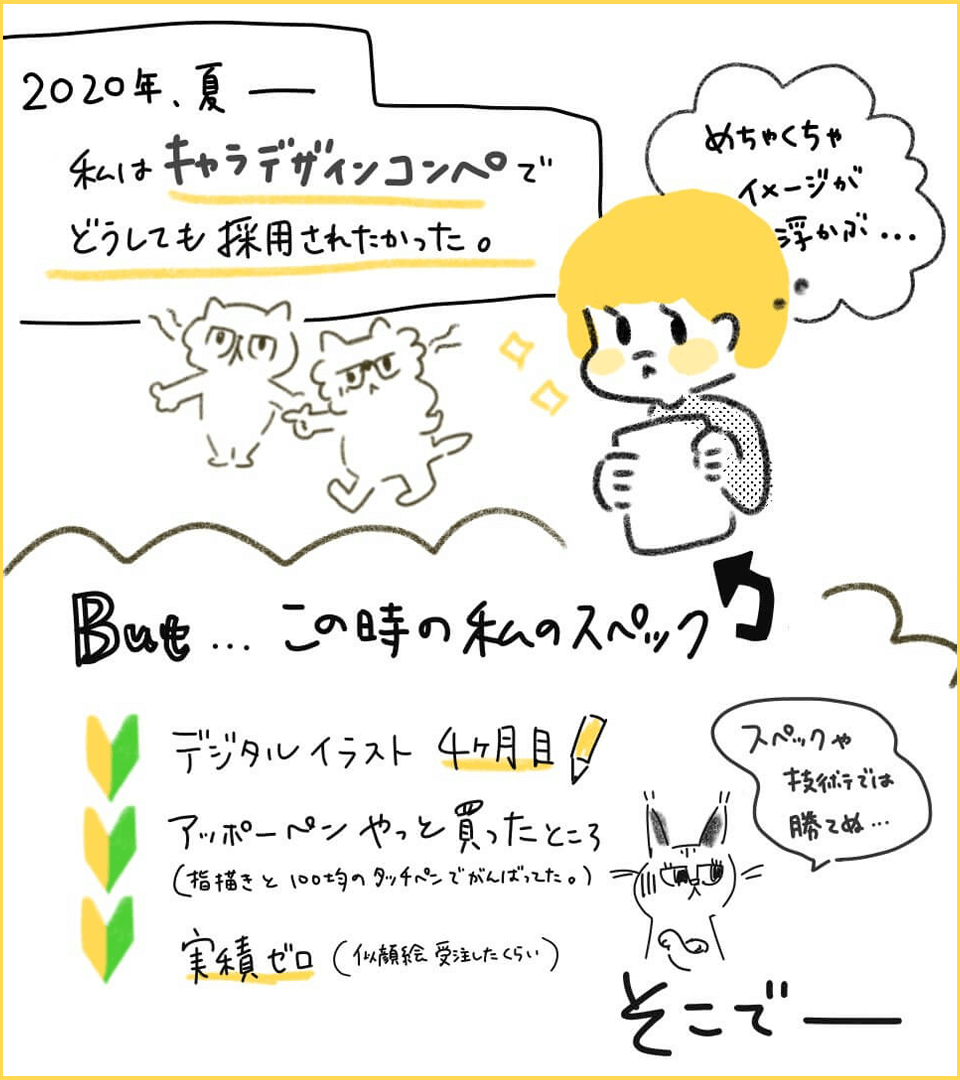 2020年、夏 ──
私はキャラデザインコンペで
どうしても採用されたかった。
めちゃくちゃ
イメージが
浮かぶ...
But... この時の私のスペック
デジタルイラスト 4ヶ月目
アッポーペンやっと買ったところ
(指描きと100均のタッチペンでがんばってた。)
実積ゼロ (似顔絵受注したくらい)
スペックや
技術では
勝てぬ...
そこで──